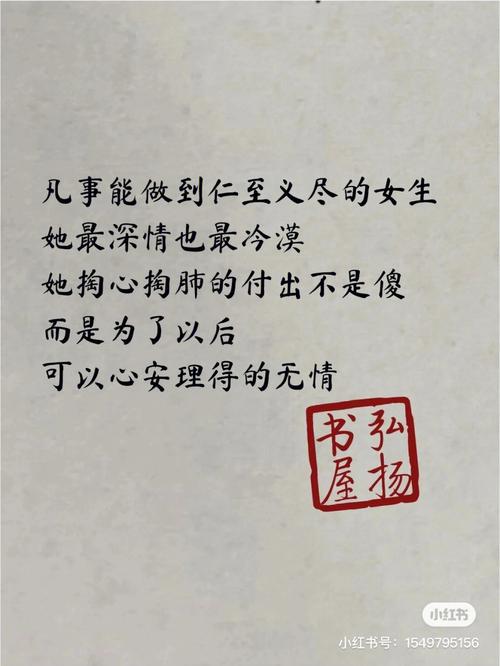 凡事能做到仁至义尽的女生
她最深情也最冷漠
她掏心掏肺的付出不是傻
而是为了以后
可以心安理得的无情
弘扬
书屋
小红书
小红书号：1549795156